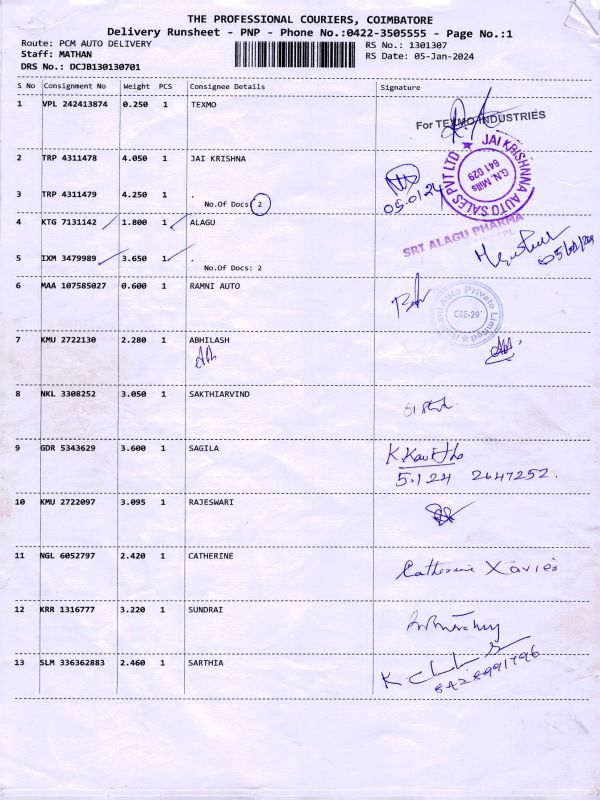 THE PROFESSIONAL COURIERS, COIMBATORE
Delivery Runsheet - PNP - Phone No.:0422-3505555 - Page No.:1
Route: PCM AUTO DELIVERY
RS No.: 1301307
Staff: MATHAN
RS Date: 05-Jan-2024
DRS No.: DCJB130130701
S No Consignment No Weight PCS Consignee Details Signature
1 VPL 242413874 0.250 1 TEXMO
For TEXMO INDUSTRIES
2 TRP 4311478 4.050 1 JAI KRISHNA
JAI KRISHNNA AUTO SALES PVT LTD ★
G.N. Mills
641 029
3 TRP 4311479 4.250 1 .
No.Of Docs: 2
05.01.24
4 KTG 7131142 1.800 1 ALAGU
SRI ALAGU PHARMA
5 IXM 3479989 3.650 1 .
No.Of Docs: 2
6 MAA 107585027 0.600 1 RAMNI AUTO
Ramani Auto Private Limited ★
CBE-29
7 KMU 2722130 2.280 1 ABHILASH
8 NKL 3308252 3.050 1 SAKTHIARVIND
9 GDR 5343629 3.600 1 SAGILA
5.1.24 2647252.
10 KMU 2722097 3.095 1 RAJESWARI
11 NGL 6052797 2.420 1 CATHERINE
Catherine Xavier
12 KRR 1316777 3.220 1 SUNDRAI
13 SLM 336362883 2.460 1 SARTHIA